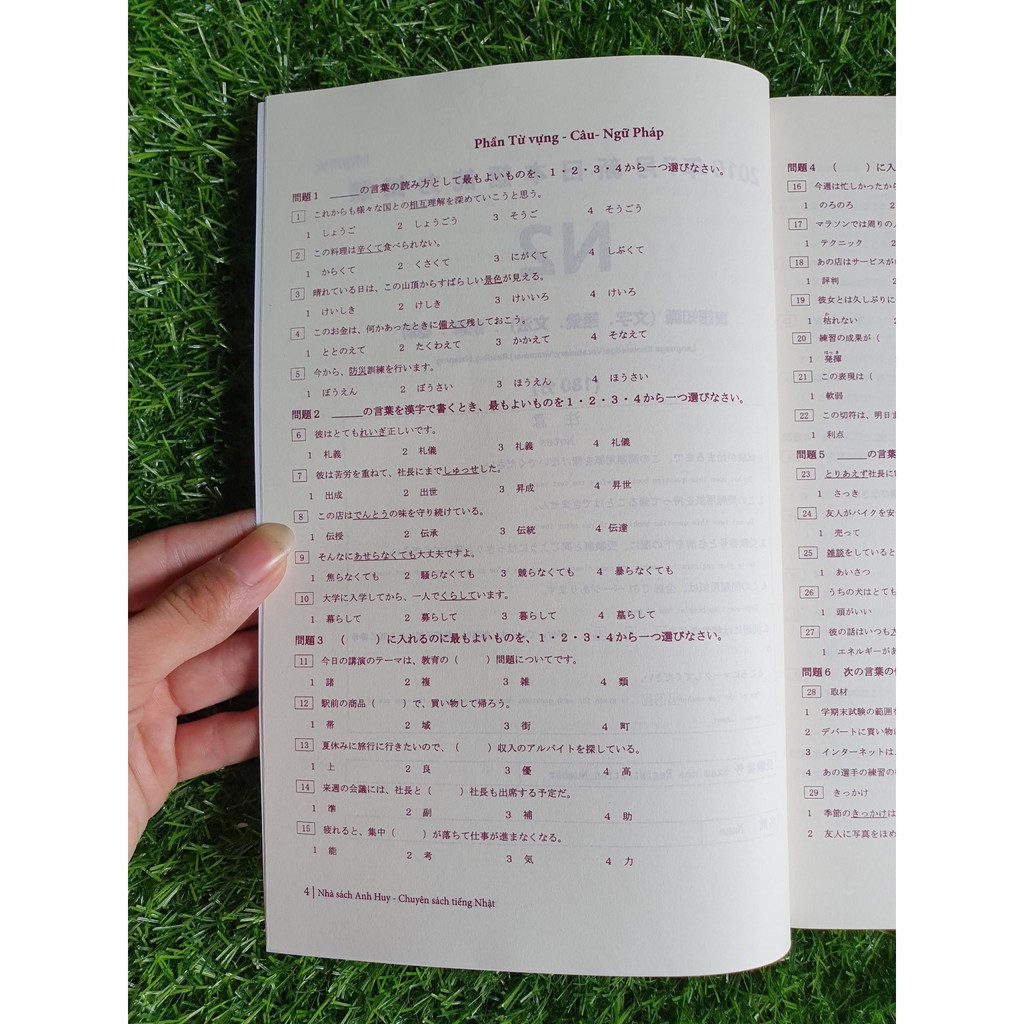 Phần Từ vựng - Câu- Ngữ Pháp
問題1 _____の言葉の読み方として最もよいものを、1・2・3・4から一つ選びなさい。
1 これからも様々な国との相互理解を深めていこうと思う。
1 しょうご 2 しょうごう 3 そうご 4 そうごう
2 この料理は辛くて食べられない。
1 からくて 2 くさくて 3 にがくて 4 しぶくて
3 晴れている日は、この山頂からすばらしい景色が見える。
1 けいしき 2 けしき 3 けいいろ 4 けいろ
4 このお金は、何かあったときに備えて残しておこう。
1 ととのえて 2 たくわえて 3 かかえて 4 そなえて
5 今から、防災訓練を行います。
1 ぼうえん 2 ぼうさい 3 ほうえん 4 ほうさい
問題2 _____の言葉を漢字で書くとき、最もよいものを1・2・3・4から一つ選びなさい。
6 彼はとてもれいぎ正しいです。
1 札義 2 札儀 3 礼義 4 礼儀
7 彼は苦労を重ねて、社長にまでしゅっせした。
1 出成 2 出世 3 昇成 4 昇世
8 この店はでんとうの味を守り続けている。
1 伝授 2 伝承 3 伝統 4 伝達
9 そんなにあせらなくても大丈夫ですよ。
1 焦らなくても 2 騒らなくても 3 競らなくても 4 暴らなくても
10 大学に入学してから、一人でくらしています。
1 幕らして 2 募らして 3 暮らして 4 墓らして
問題3 ( )に入れるのに最もよいものを、1・2・3・4から一つ選びなさい。
11 今日の講演のテーマは、教育の( )問題についてです。
1 諸 2 複 3 雑 4 類
12 駅前の商品( )で、買い物して帰ろう。
1 帯 2 城 3 街 4 町
13 夏休みに旅行に行きたいので、( )収入のアルバイトを探している。
1 上 2 良 3 優 4 高
14 来週の会議には、社長と( )社長も出席する予定だ。
1 準 2 副 3 補 4 助
15 疲れると、集中( )が落ちて仕事が進まなくなる。
1 能 2 考 3 気 4 力
4 | Nhà sách Anh Huy - Chuyên sách tiếng Nhật
問題4 ( )に入
16 今週は忙しかったから
1 のろのろ 2
17 マラソンでは周りの
1 テクニック 2
18 あの店はサービスが
1 評判 2
19 彼女とは久しぶりに
1 枯れない 2
20 練習の成果が(
1 発揮
21 この表現は(
1 軟弱
22 この切符は、明日ま
1 利点
問題5 _____の言葉
23 とりあえず社長に
1 さっき
24 友人がバイクを安
1 売って
25 雑談をしていると
1 あいさつ
26 うちの犬はとても
1 頭がいい
27 彼の話はいつも
1 エネルギーがあ
問題6 次の言葉の
28 取材
1 学期末試験の範囲
2 デパートに買い物に
3 インターネットは、
4 あの選手の練習の
29 きっかけ
1 季節のきっかけは
2 友人に写真をほめ